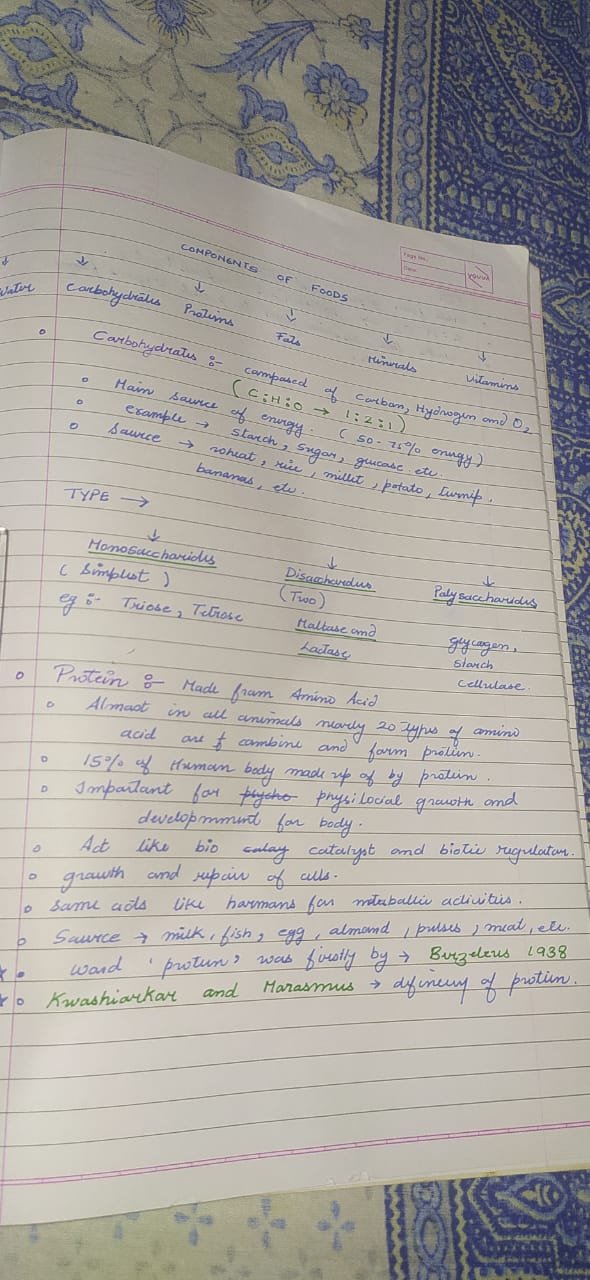 Page No.
Date
YOUVA
COMPONENTS OF FOODS
↓ ↓ ↓ ↓ ↓ ↓
Water Carbohydrates Proteins Fats Minerals Vitamins
Carbohydrates :- composed of Carbon, Hydrogen and O2
(C:H:O → 1:2:1)
Main source of energy. (50-75% energy)
example → starch, sugar, glucose etc.
Source → wheat, rice, millet, potato, turnip,
bananas, etc.
TYPE →
↓ ↓ ↓
Monosaccharides Disaccharides Polysaccharides
(Simplest) (Two)
eg :- Triose, Tetrose Maltase and Glycogen,
Lactase Starch
Cellulase.
Protein :- Made from Amino Acid
Almost in all animals nearly 20 types of amino
acid are combine and form protein.
15% of Human body made up of by protein.
Important for physilocial growth and
developmment for body.
Act like bio catalyst and biotic regulator.
growth and repair of cells.
Some acts like harmans for metabolic activities.
Source → milk, fish, egg, almond, pulses, meat, etc.
word 'protein' was firstly by → Burzeleus 1938
Kwashiorkar and Marasmus → dificiency of protein.